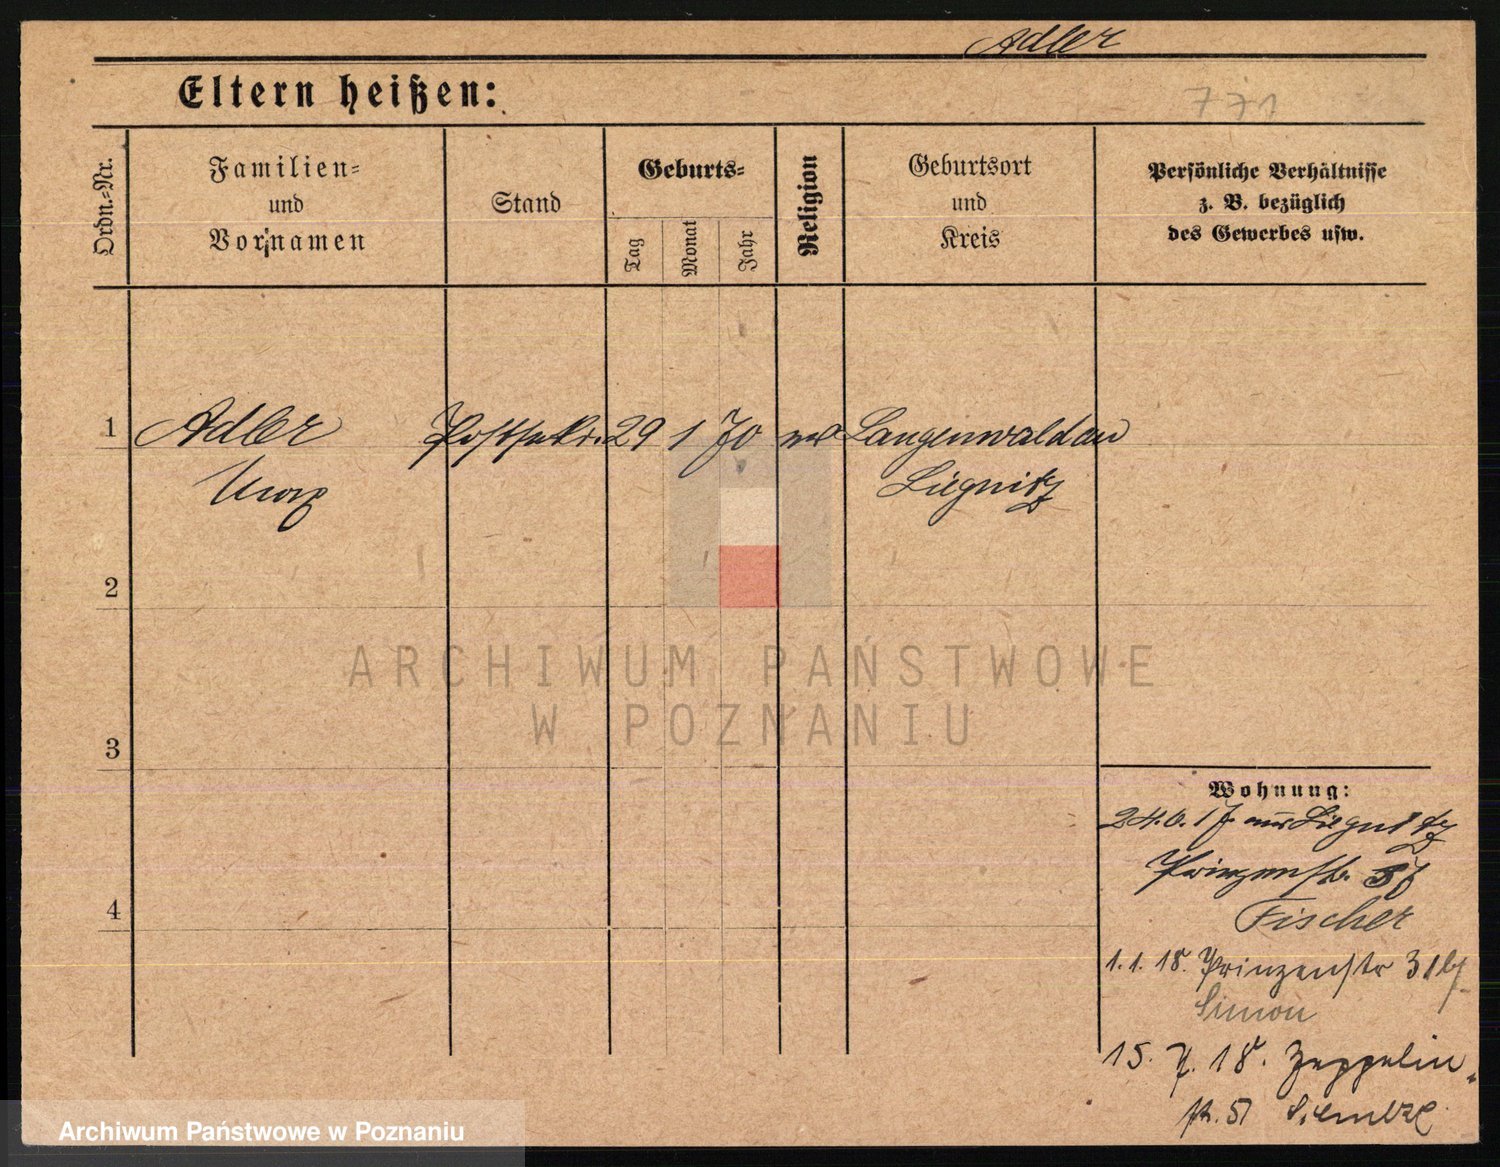 Adler
Eltern heißen:
771
Ordn.-Nr.
Familien-
und
Vornamen
Stand
Geburts-
Tag
Monat
Jahr
Religion
Geburtsort
und
Kreis
Persönliche Verhältnisse
z. B. bezüglich
des Gewerbes usw.
1 Adler Postsekr. 29 1 70 Langenwaldau
Max Liegnitz
2
ARCHIWUM PAŃSTWOWE
W POZNANIU
3
Wohnung:
24.6.17. aus Liegnitz
Prinzenstr.
Fischer
4
1.1.18. Prinzenstr 31
Simon
15. 7. 18. Zeppelin-
str. 5
Archiwum Państwowe w Poznaniu